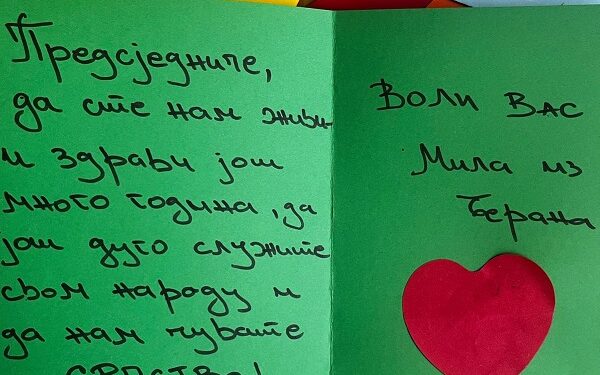 Предсједниче,
да сте нам живи
и здрави још
много година, да
још дуго служите
свом народу и
да нам чувате
СРПСТВО!
Воли Вас
Мила из
Берана